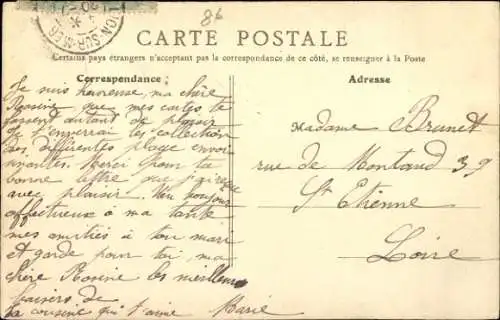 86
CARTE POSTALE
Certains pays étrangers n'acceptant pas la correspondance de ce côté, se renseigner à la Poste
Correspondance :
Je suis heureuse, ma chère
Rosine que mes cartes te
fassent autant de plaisir
je t'enverrai les collection
des différentes plage envi-
ronnantes. Merci pour ta
bonne lettre que j'ai reçue
avec plaisir. Un bonjour
affectueux à ma tante
mes amitiés à ton mari
et garde pour toi, ma
chère Rosine les meilleurs
baisers de
ta cousine qui t'aime Marie
Adresse
Madame Brunet
rue de Montaud 39
St Etienne
Loire